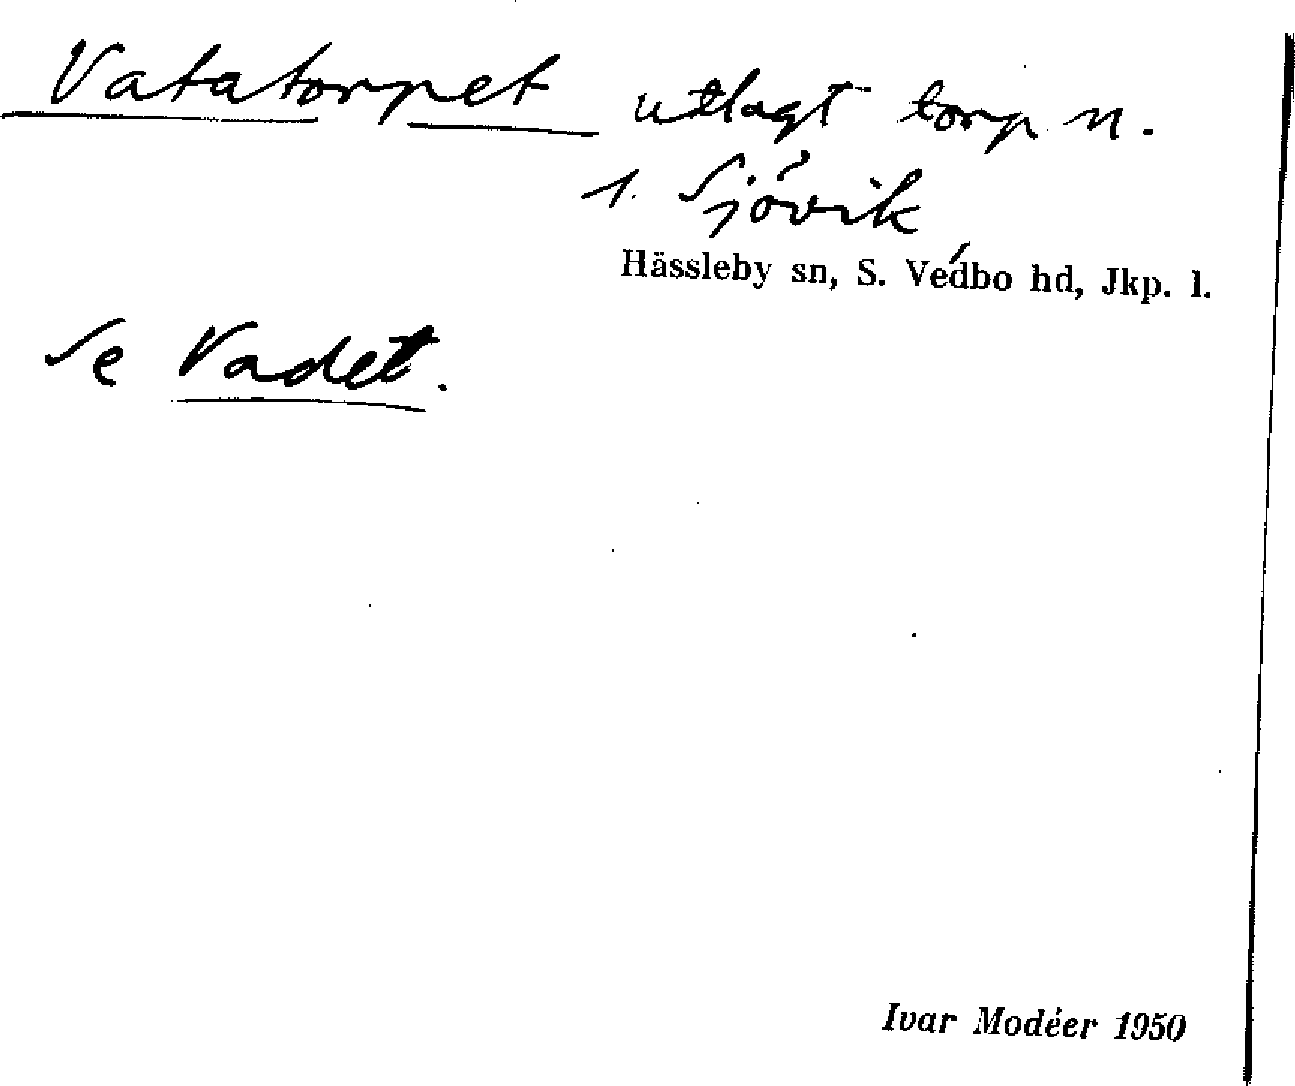 Vatatorpet utlagt torp u.
1. Sjövik
Hässleby sn, S. Vedbo hd, Jkp. l.
Se Vadet.
Ivar Modéer 1950